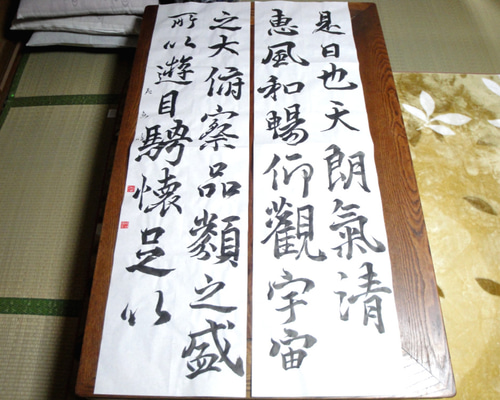 是日也天朗氣清
恵風和暢仰觀宇宙
之大俯察品類之盛
所以遊目騁懷足以